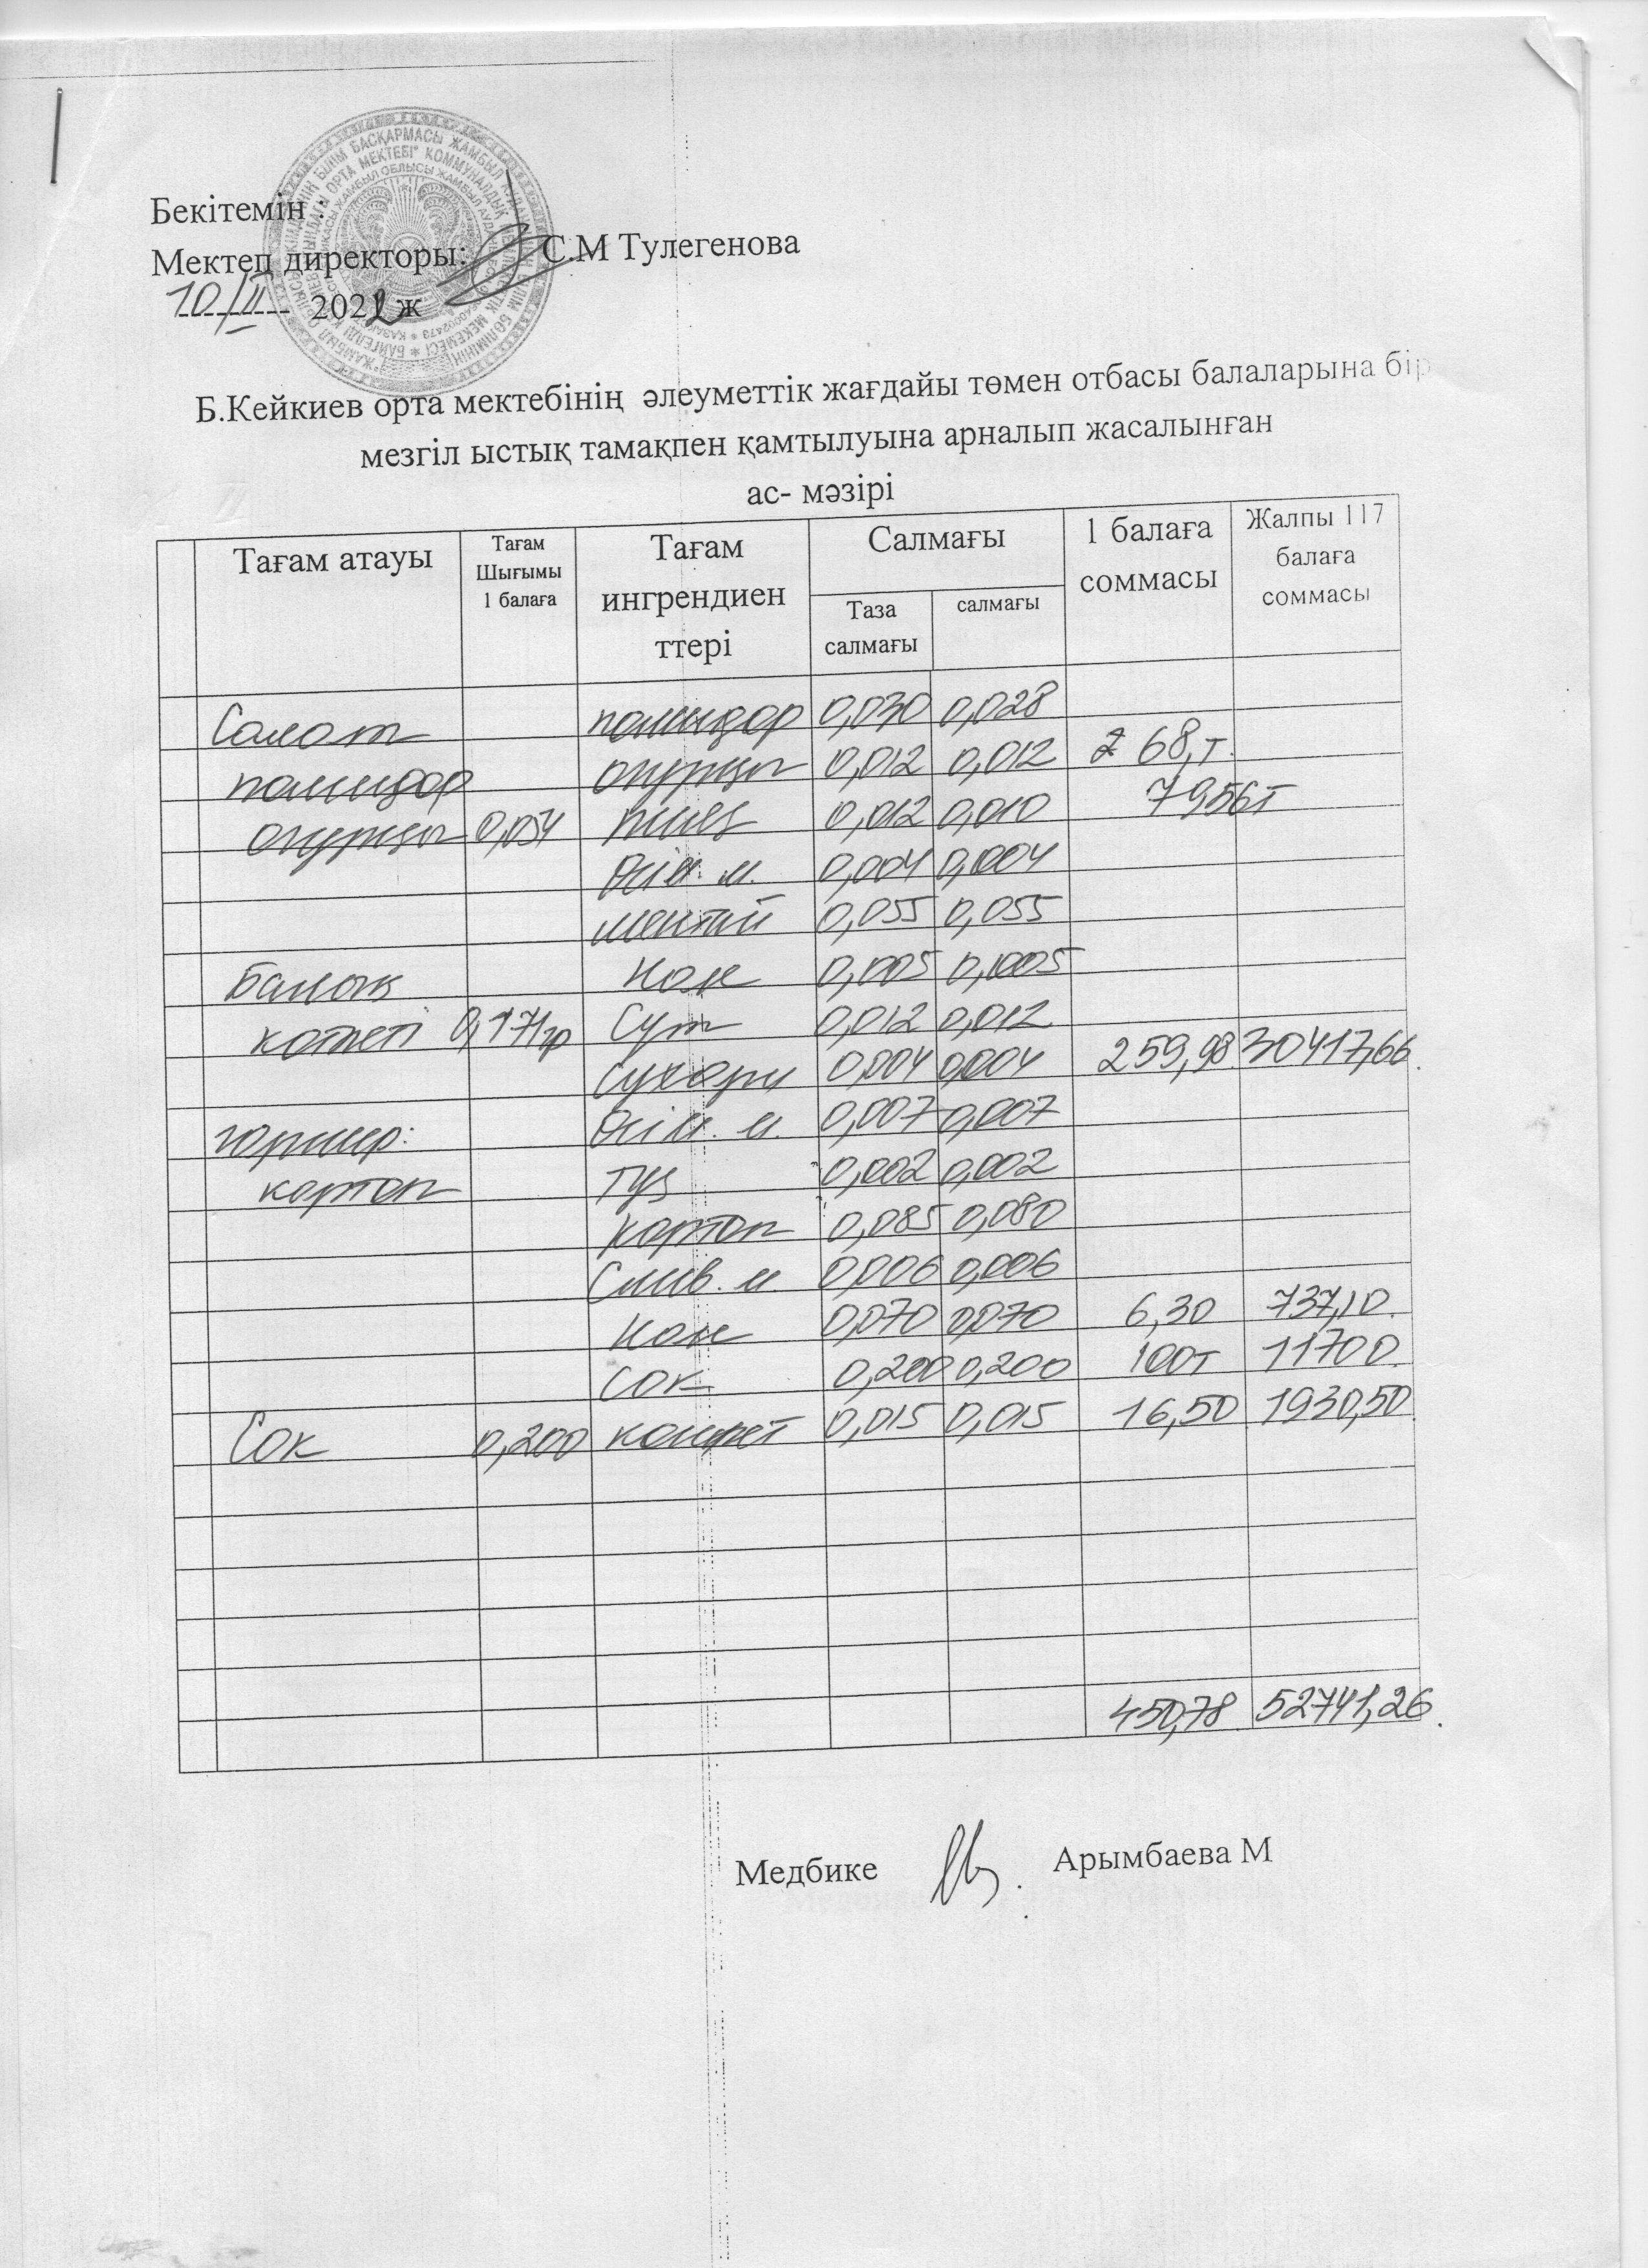 Бекітемін :
Мектеп директоры: С.М Тулегенова
10/II 2022 ж
Б.Кейкиев орта мектебінің әлеуметтік жағдайы төмен отбасы балаларына бір
мезгіл ыстық тамақпен қамтылуына арналып жасалынған
ас- мәзірі
Тағам атауы Тағам Шығымы 1 балаға Тағам ингрендиен ттері Салмағы Таза салмағы салмағы 1 балаға соммасы Жалпы 117 балаға соммасы
Салат помидор 0,030 0,028
помидор огурцы 0,012 0,012 68,т.
огурцы 0,054 пияз 0,012 0,010 7956т
Өсім. м. 0,004 0,004
минтай 0,055 0,055
Балық Нан 0,005 0,005
котлеті 0,171гр Сүт 0,012 0,012
Сухари 0,004 0,004 259,98 30417,66.
гарнир: Өсім. м. 0,007 0,007
картоп Тұз 0,002 0,002
картоп 0,085 0,080
Слив. м. 0,006 0,006
Нан 0,070 0,070 6,30 737,10.
Сок 0,200 0,200 100т 11700.
Сок 0,200 конфет 0,015 0,015 16,50 1930,50
450,78 52741,26.
Медбике Арымбаева М